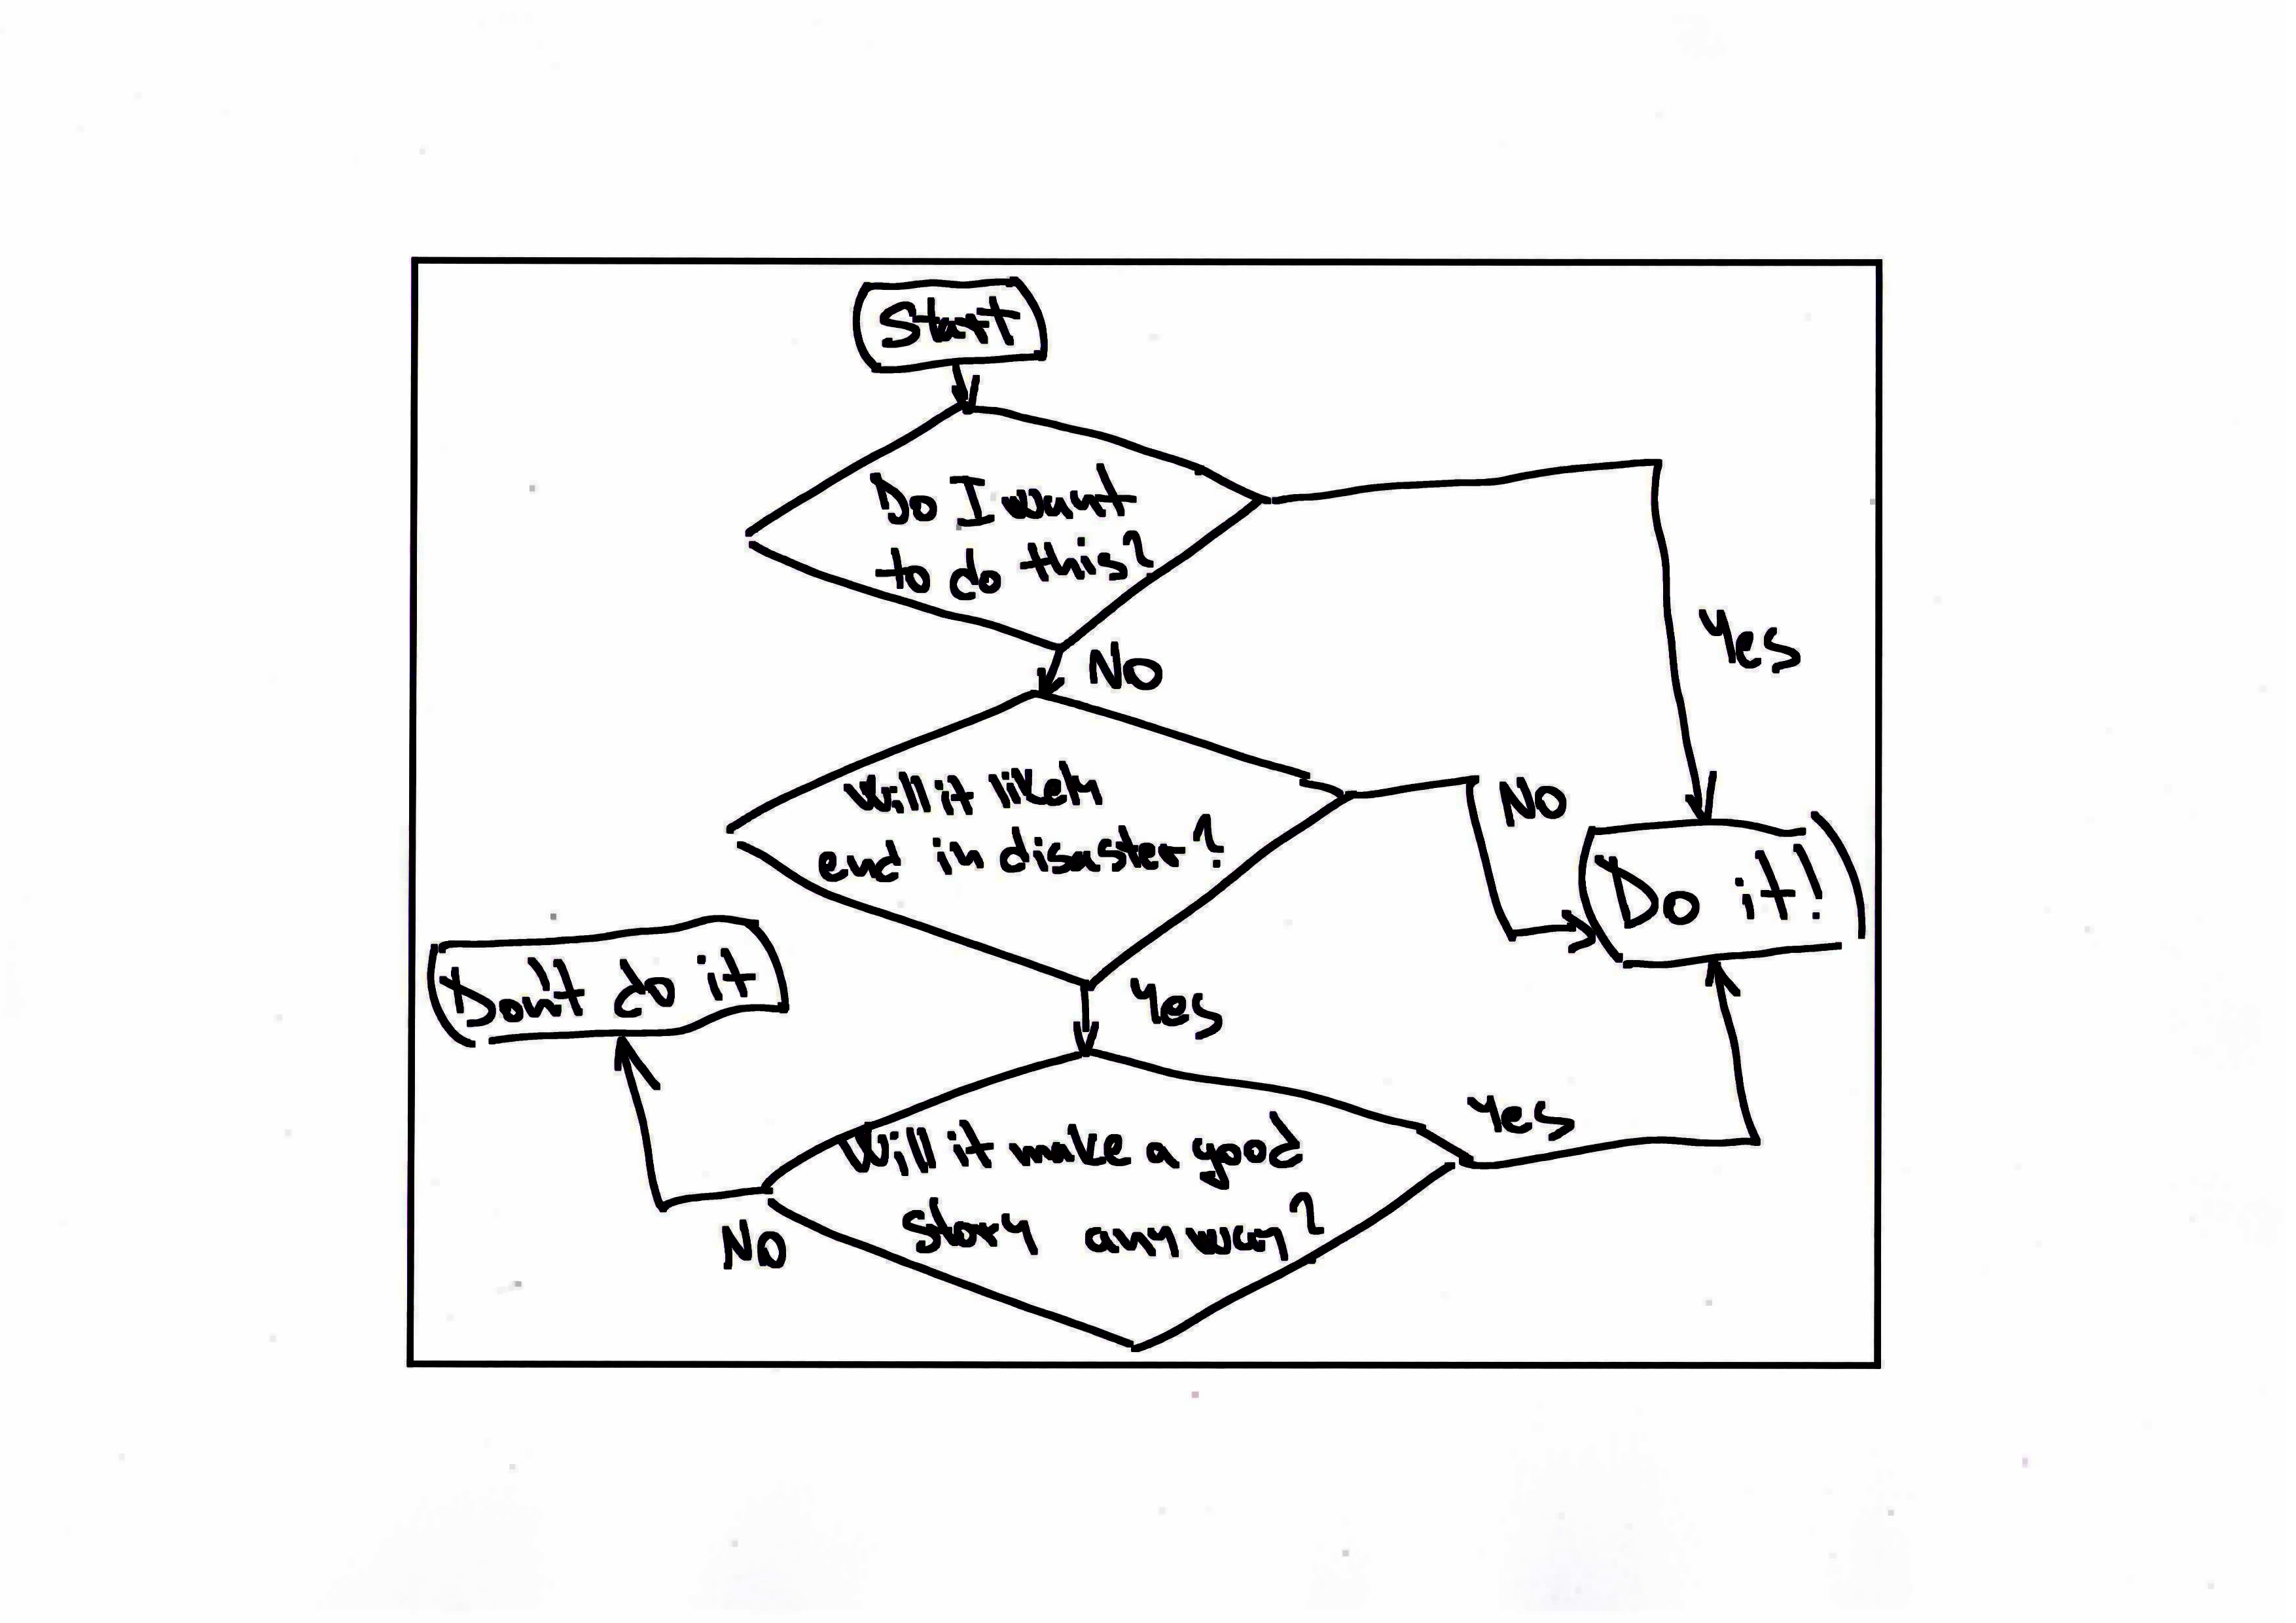 Start
Do I want
to do this?
Yes
No
Will it likely
end in disaster?
No
Do it!
Don't do it
Yes
Will it make a good
story anyway?
Yes
No